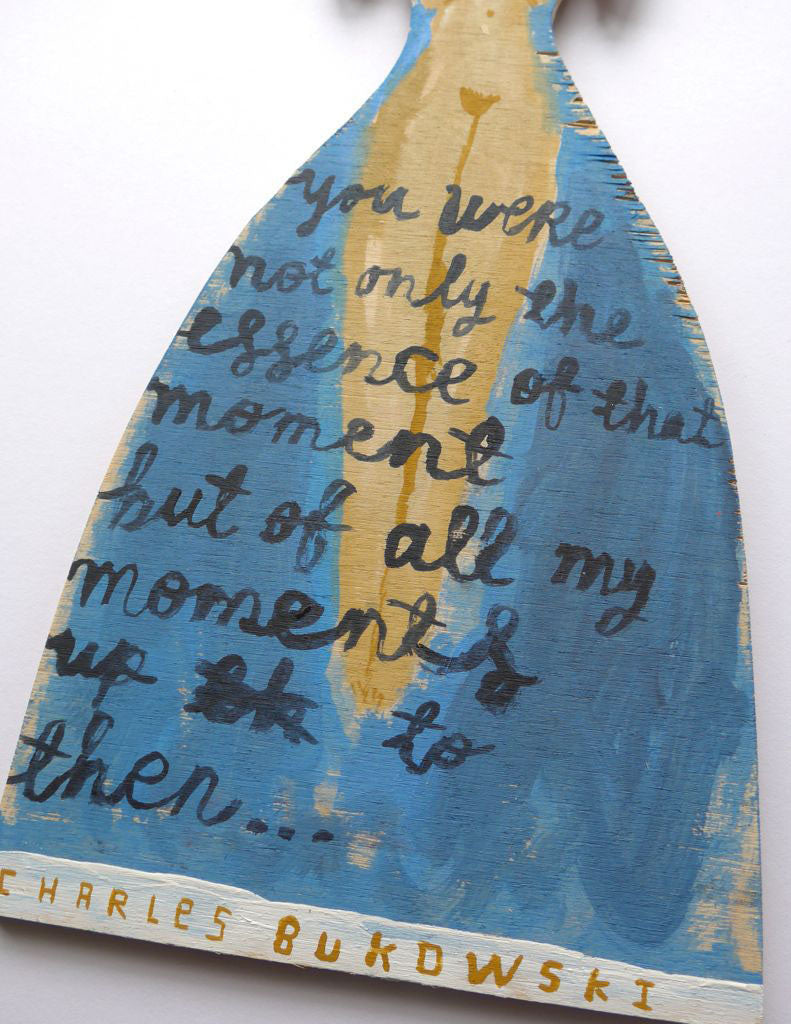 you were
not only the
essence of that
moment
but of all my
moments
up to
then...
CHARLES BUKOWSKI